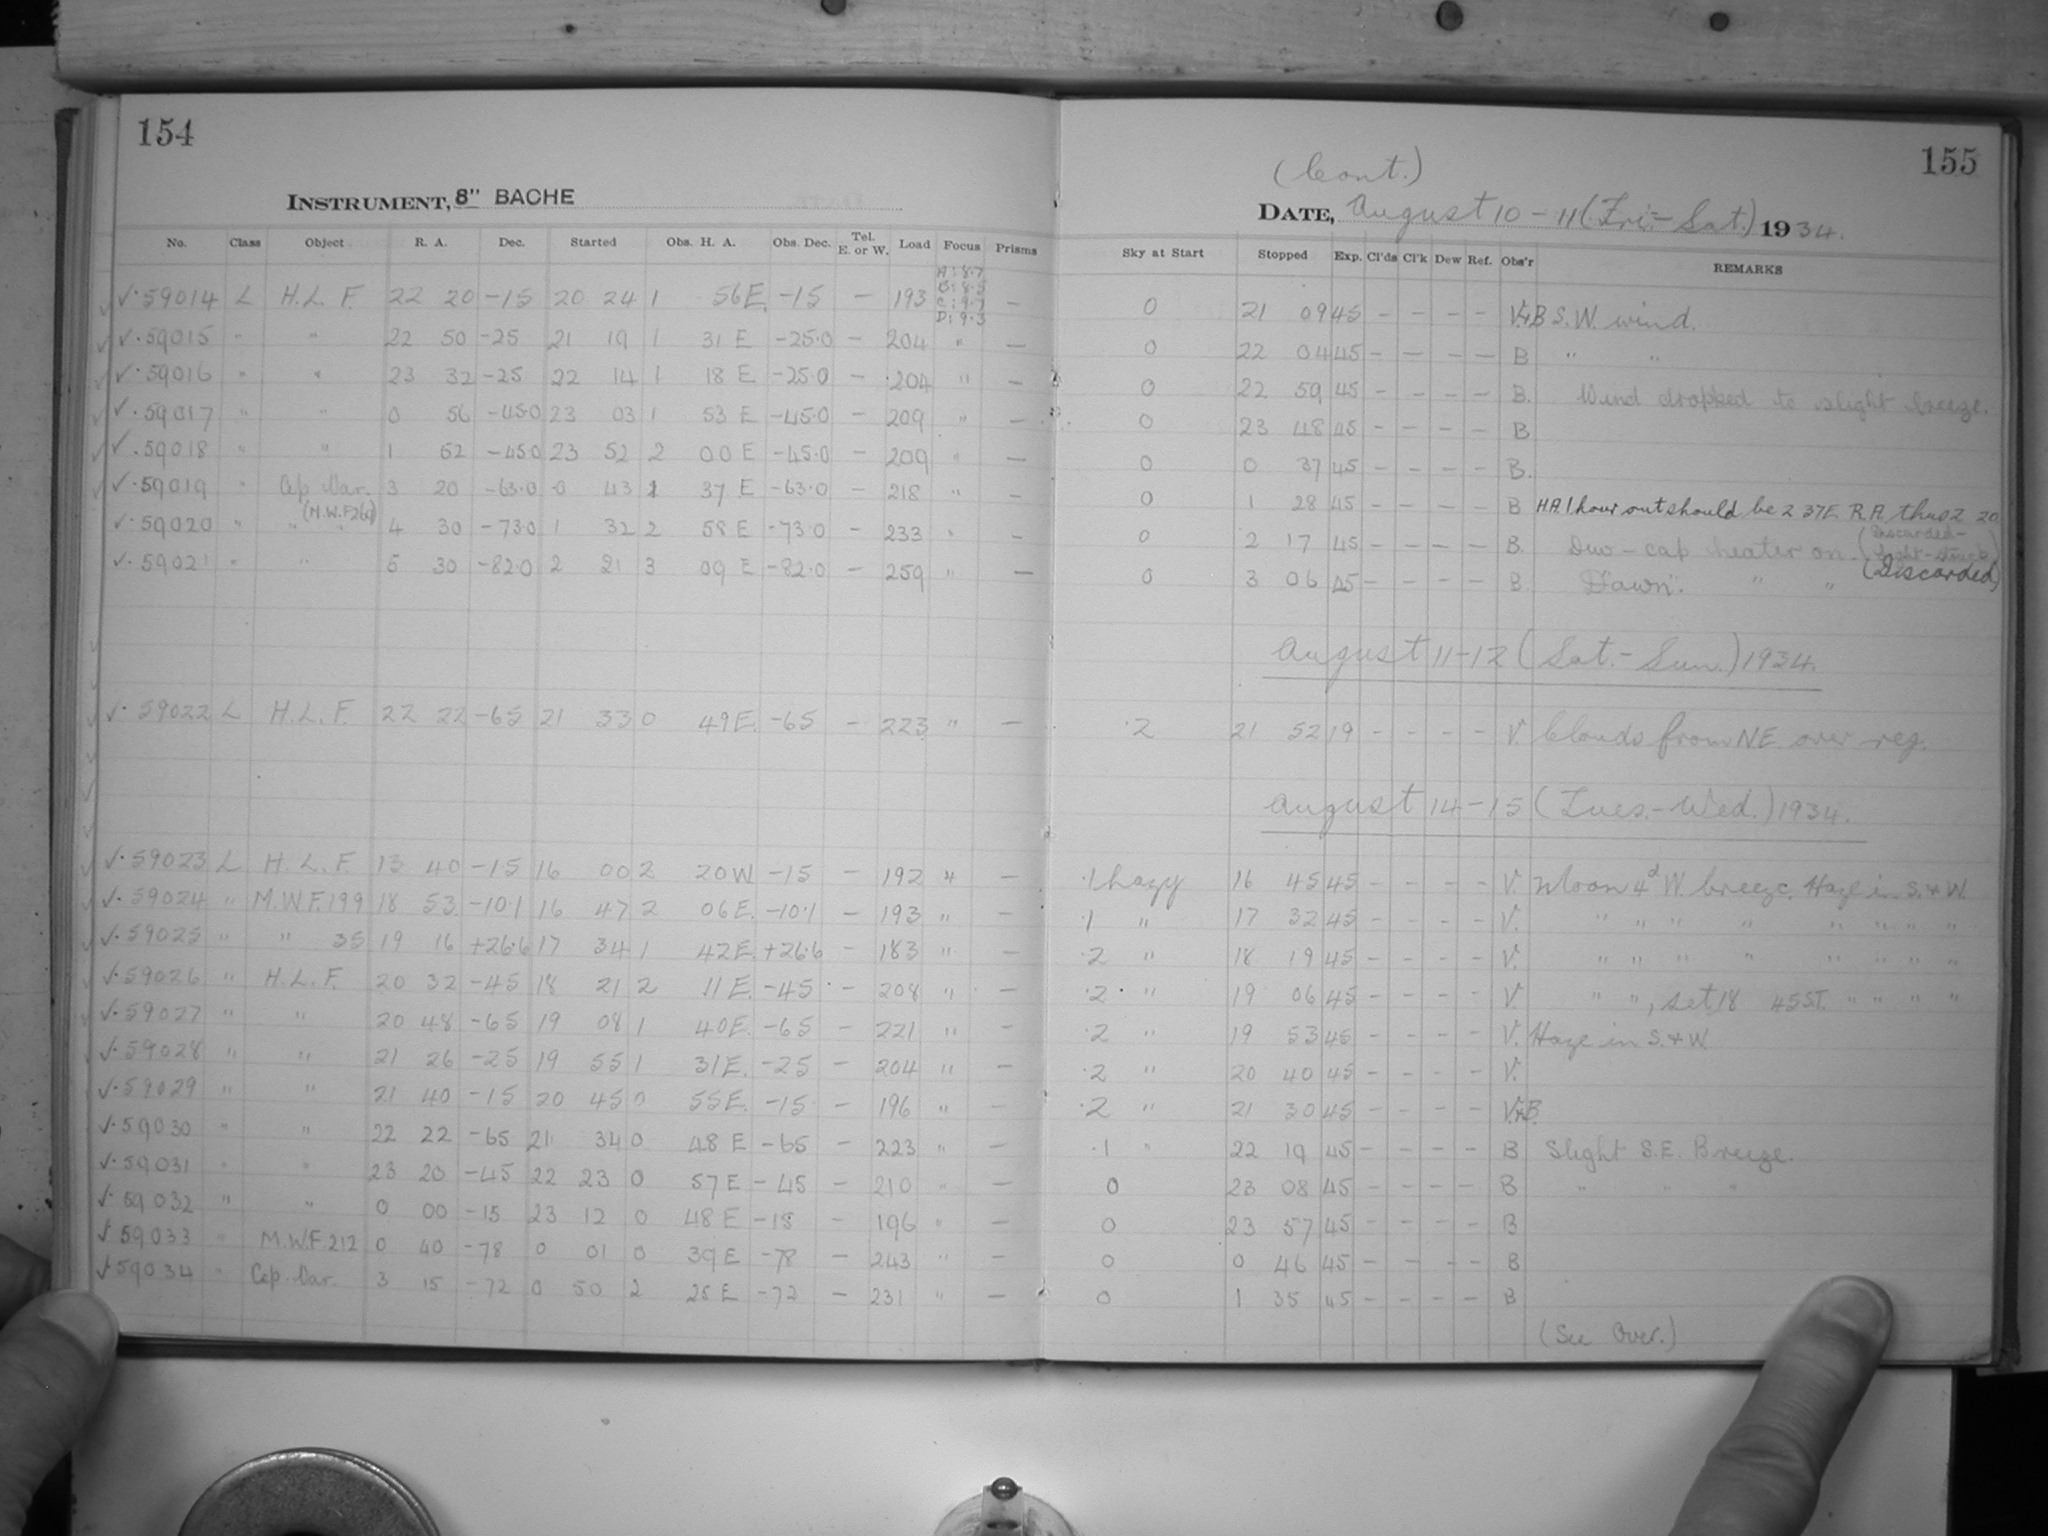 154
INSTRUMENT, 8" BACHE
No. Class Object R. A. Dec. Started Obs. H. A. Obs. Dec. Tel. E. or W. Load Focus Prisms
A: 8.7
B: 8.5
C: 9.7
D: 9.3
✓·59014 L H.L.F. 22 20 -15 20 24 1 56E. -15 — 193 —
✓·59015 " " 22 50 -25 21 19 1 31 E -25.0 — 204 " —
✓·59016 " " 23 32 -25 22 14 1 18 E -25.0 — 204 " —
✓·59017 " " 0 56 -45.0 23 03 1 53 E -45.0 — 209 " —
✓·59018 " " 1 52 -45.0 23 52 2 00 E -45.0 — 209 " —
✓·59019 " Cep. Var. 3 20 -63.0 0 43 1 37 E -63.0 — 218 " —
(M.W.F260)
✓·59020 " " " 4 30 -73.0 1 32 2 58 E -73.0 — 233 " —
✓·59021 " " 5 30 -82.0 2 21 3 09 E -82.0 — 259 " —
✓·59022 L H.L.F. 22 22 -65 21 33 0 49E. -65 — 223 " —
✓·59023 L H.L.F. 13 40 -15 16 00 2 20W -15 — 192 " —
✓·59024 " M.W.F.199 18 53 -10.1 16 47 2 06E. -10.1 — 193 " —
✓·59025 " " 35 19 16 +26.6 17 34 1 42E. +26.6 — 183 " —
✓·59026 " H.L.F. 20 32 -45 18 21 2 11E. -45 — 208 " —
✓·59027 " " 20 48 -65 19 08 1 40E. -65 — 221 " —
✓·59028 " " 21 26 -25 19 55 1 31E. -25 — 204 " —
✓·59029 " " 21 40 -15 20 45 0 55E. -15 — 196 " —
✓·59030 " " 22 22 -65 21 34 0 48 E -65 — 223 " —
✓·59031 " " 23 20 -45 22 23 0 57 E -45 — 210 " —
✓·59032 " " 0 00 -15 23 12 0 48 E -15 — 196 " —
✓·59033 " M.W.F.212 0 40 -78 0 01 0 39 E -78 — 243 " —
✓·59034 " Cep. Var. 3 15 -72 0 50 2 25 E -72 — 231 " —
155
(Cont.)
DATE, August 10-11 (Fri.-Sat.) 1934.
Sky at Start Stopped Exp. Cl'ds Cl'k Dew Ref. Obs'r REMARKS
0 21 09 45 — — — — V.+B S.W. wind.
0 22 04 45 — — — — B " "
0 22 59 45 — — — — B. Wind dropped to slight breeze.
0 23 48 45 — — — — B
0 0 37 45 — — — — B.
0 1 28 45 — — — — B H.A. 1 hour out should be 2 37E R.A. thus 2 20
0 2 17 45 — — — — B. Dew-cap heater on. (Discarded - light-struck)
0 3 06 45 — — — — B. Dawn. " " (Discarded)
August 11-12 (Sat.-Sun.) 1934.
.2 21 52 19 — — — — V. Clouds from NE. over reg.
August 14-15 (Tues.-Wed.) 1934.
.1 hazy 16 45 45 — — — — V. Moon 4d W. breeze. Haze in S.+W.
.1 " 17 32 45 — — — — V. " " " " " " " "
.2 " 18 19 45 — — — — V. " " " " " " " "
.2 " 19 06 45 — — — — V. " ", set 18 45 S.T. " " " "
.2 " 19 53 45 — — — — V. Haze in S.+W.
.2 " 20 40 45 — — — — V.
.2 " 21 30 45 — — — — V.+B.
.1 " 22 19 45 — — — — B Slight S.E. Breeze.
0 23 08 45 — — — — B " " "
0 23 57 45 — — — — B
0 0 46 45 — — — — B
0 1 35 45 — — — — B
(See Over.)